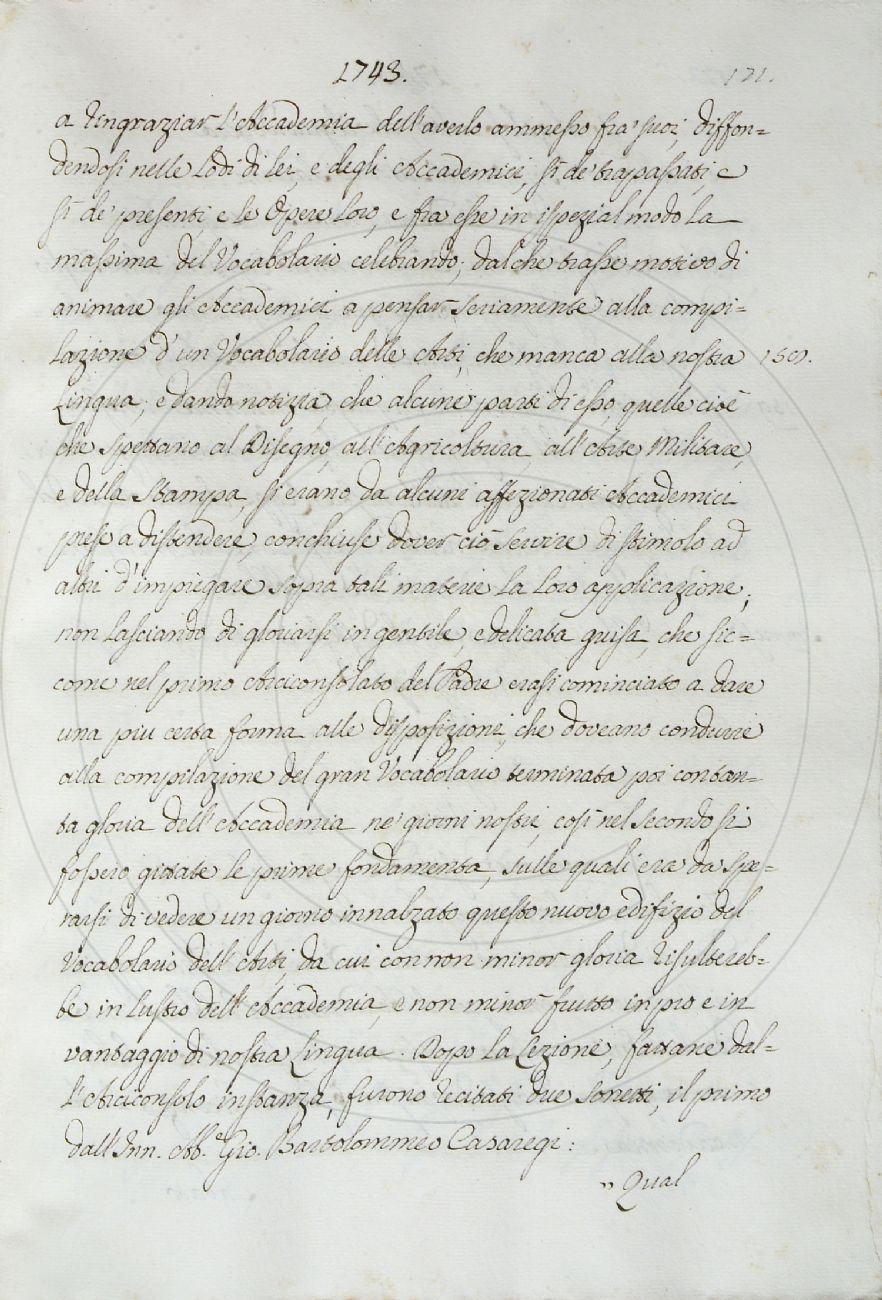 1743.
121.
a ringraziar l'Accademia dell'averlo ammesso fra' suoi, diffon=
dendosi nelle Lodi di Lei, e degli Accademici, sì de' trapassati, e
sì de' presenti, e le Opere Loro, e fra esse in ispezial modo La
massima del Vocabolario celebrando; dal che trasse motivo di
animare gli Accademici a pensar seriamente alla compi=
lazione d'un Vocabolario delle Arti, che manca alla nostra
Lingua; e dando notizia, che alcune parti di esso, quelle cioè
che spettano al Disegno, all'Agricoltura, all'Arte Militare,
e della Stampa, si erano da alcuni affezionati Accademici
prese a distendere, conchiuse dover ciò servire di stimolo ad
altri d'impiegare sopra tali materie La Loro applicazione;
non lasciando di gloriarsi in gentile, e delicata guisa, che sic=
come nel primo Arciconsolato del Padre erasi cominciato a dare
una piu certa forma alle disposizioni, che doveano condurre
alla compilazione del gran Vocabolario terminata poi con tan=
ta gloria dell'Accademia ne' giorni nostri, così nel secondo si
fossero gittate le prime fondamenta, sulle quali era da spe=
rarsi di vedere un giorno innalzato questo nuovo edifizio del
Vocabolario dell'Arti, da cui con non minor gloria risultereb=
be in lustro dell'Accademia, e non minor frutto in pro e in
vantaggio di nostra Lingua. Dopo La Lezione, fattane dal=
l'Arciconsolo instanza, furono recitati due Sonetti, il primo
dall'Inn. Ab.e Gio. Bartolommeo Casaregi:
" Qual